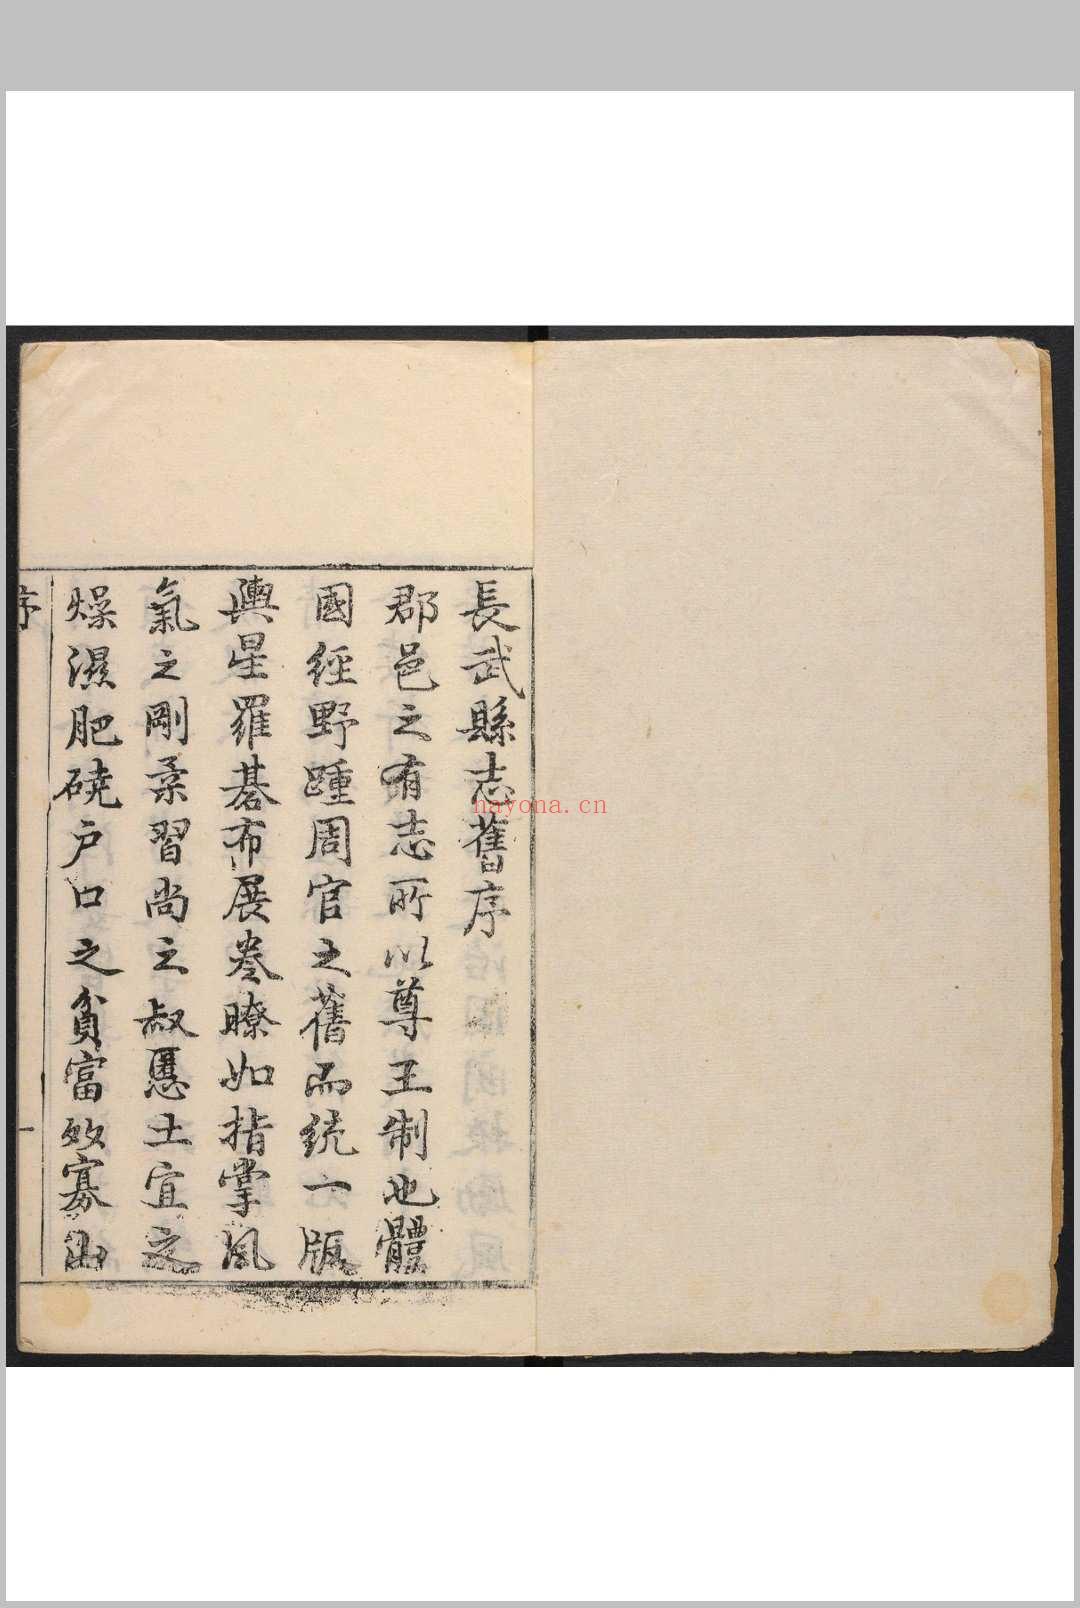 長武縣志舊序
郡邑之有志所以尊王制也體
國經野踵周官之舊而統一版
輿星羅碁布展卷瞭如指掌風
氣之剛柔習尚之叔慝土宜之
燥濕肥磽户口之貧富敓寡山
序
一
nayona.cn